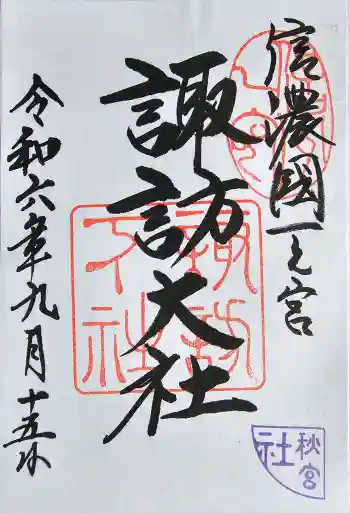 信濃國一之宮
諏訪大社
令和六年九月十五日
諏訪大社
秋宮
社